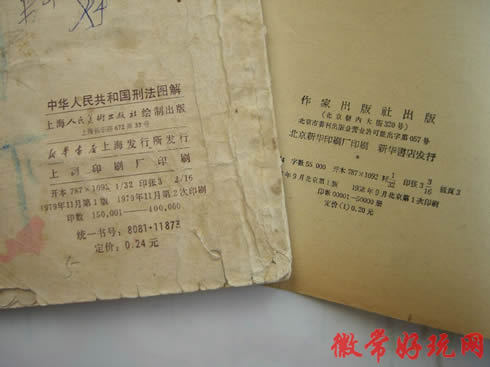 中华人民共和国刑法图解
上海人民美术出版社绘制出版
上海长乐路672弄33号
新华书店上海发行所发行
上海印刷厂印刷
开本 787×1092 1/32 印张 3 2/16
1979年11月第1版 1979年11月第2次印刷
印数 150,001—400,000
统一书号：8081·11873
定价：0.24 元
作家出版社出版
(北京朝内大街320号)
北京市書刊出版业营业許可証出字第057号
北京新华印刷厂印刷 新华書店发行
字数 55,000 开本 787×1092 1/32 印张 3 3/16
年9月北京第1版 1958年9月北京第1次印刷
印数 00001—50000册
定价(1)0.20元
徽常好玩网